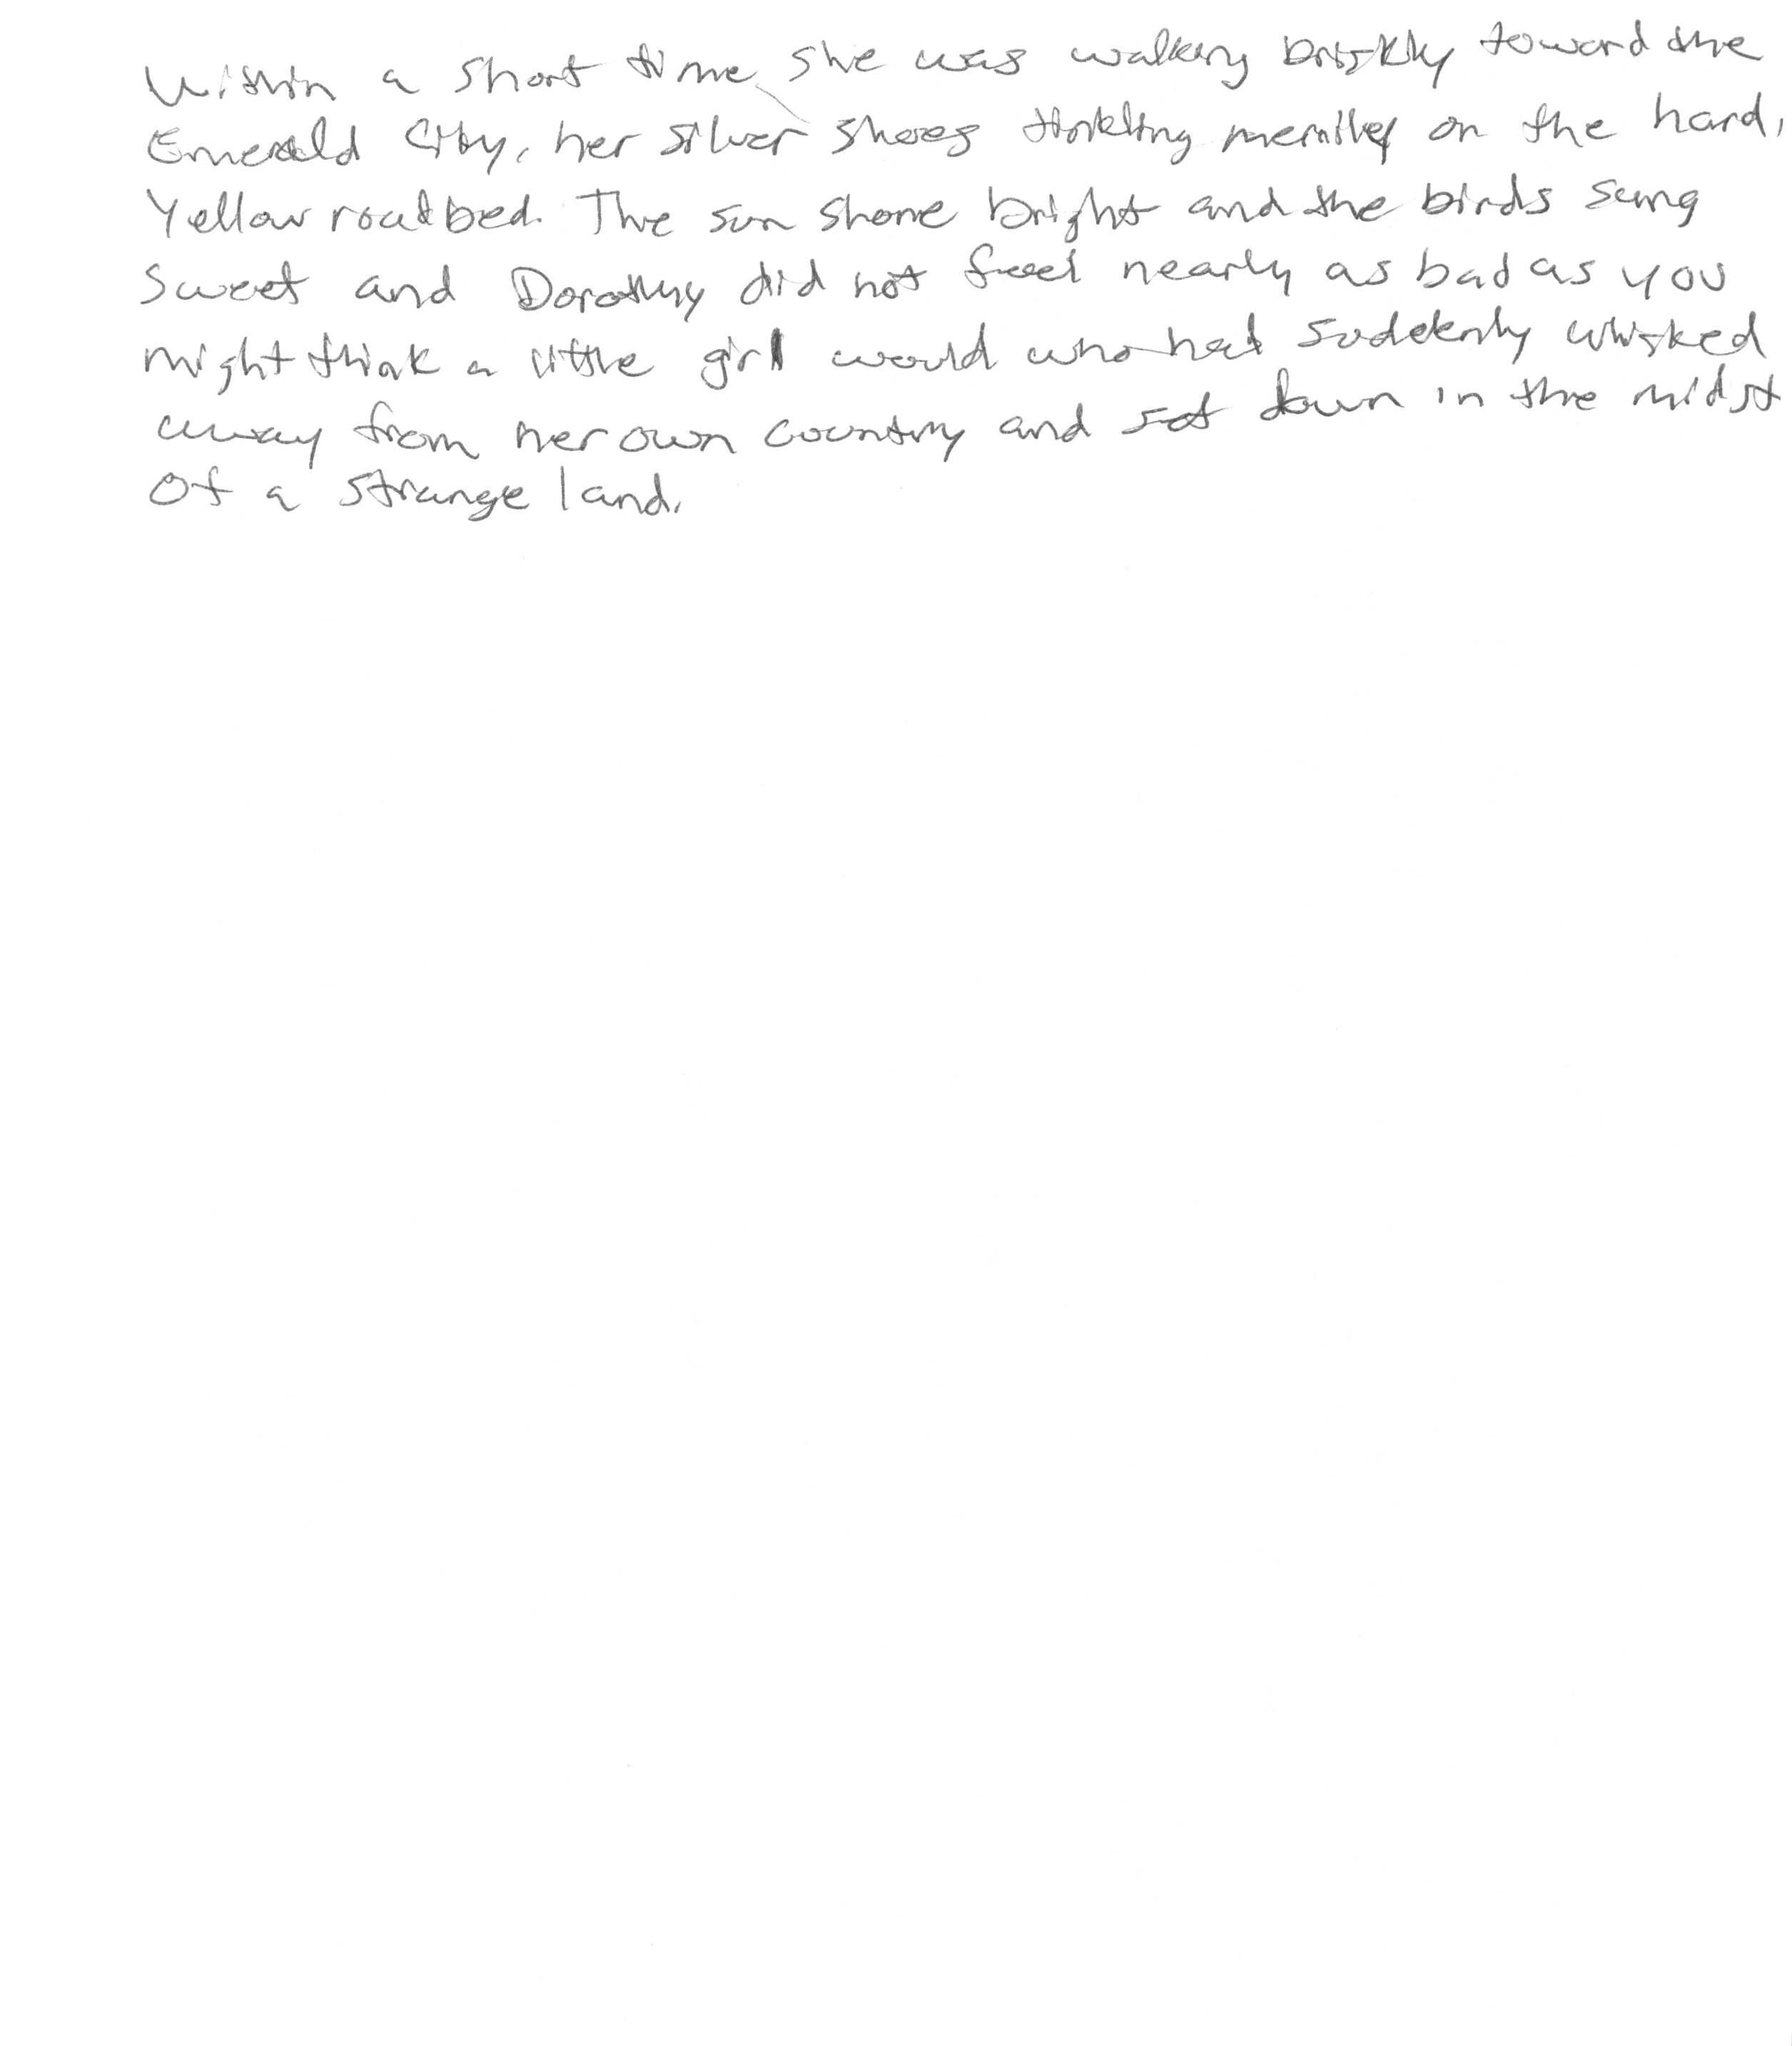 Within a short time she was walking briskly toward the
Emerald City, her silver shoes tinkling merrily on the hard,
Yellow roadbed. The sun shone bright and the birds sang
sweet and Dorothy did not feel nearly as bad as you
might think a little girl would who had suddenly whisked
away from her own country and set down in the midst
Of a strange land.